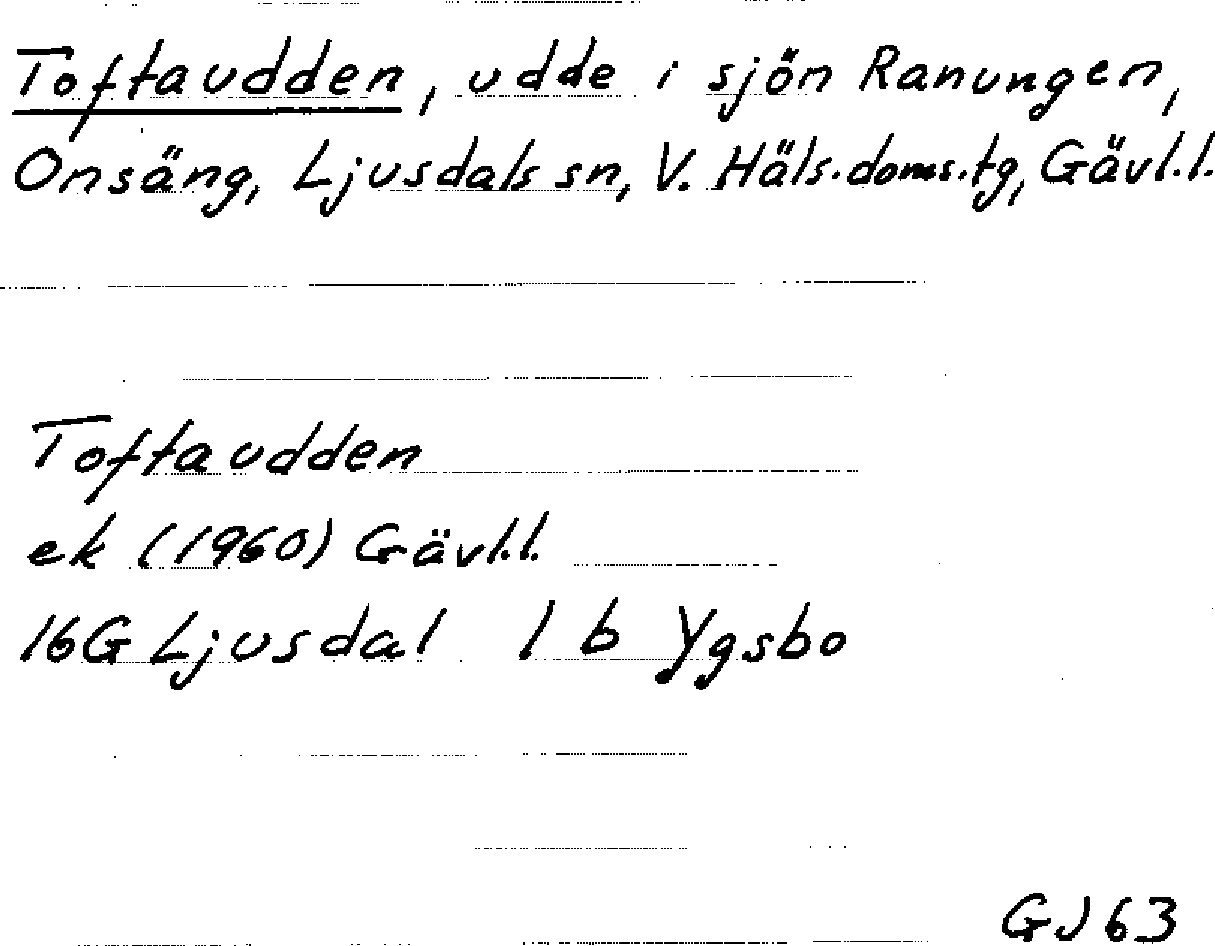 Toftaudden, udde i sjön Ranungen,
Onsäng, Ljusdals sn, V. Häls.doms.tg, Gävl.l.
Toftaudden
ek (1960) Gävl.l.
16G Ljusdal 1 b Ygsbo
GJ 63